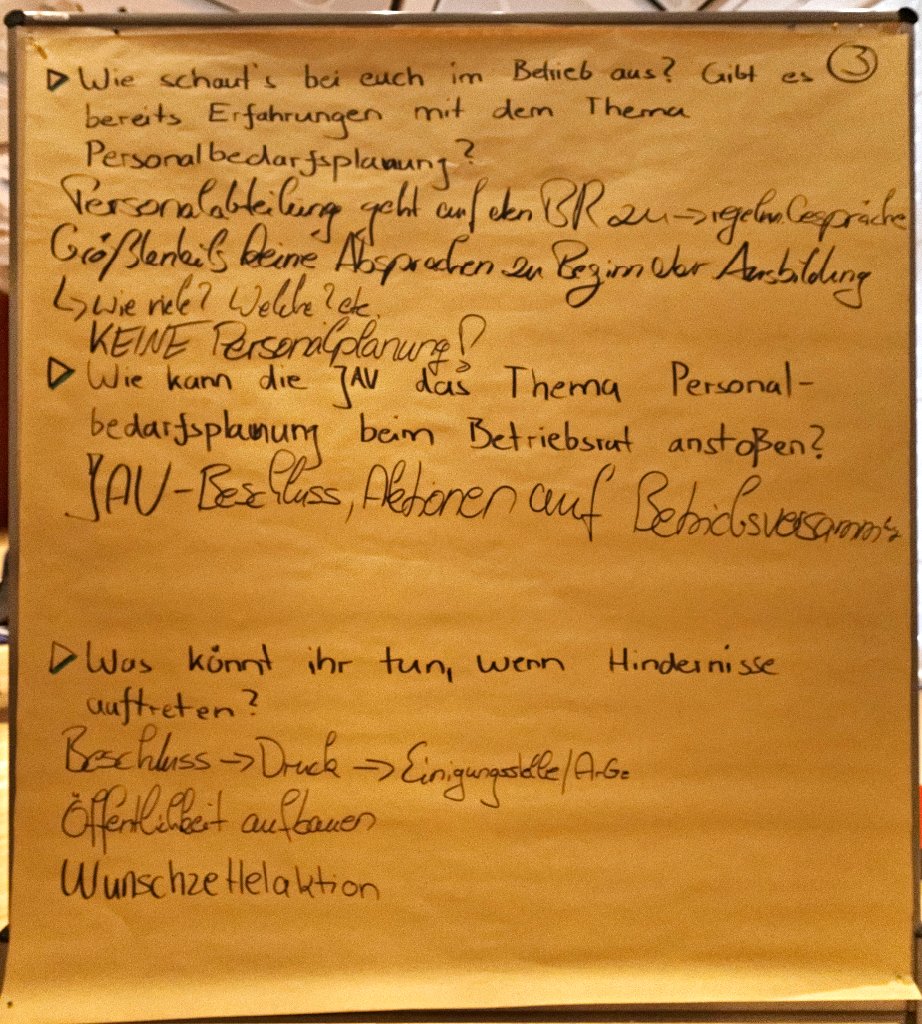 ▷ Wie schaut's bei euch im Betrieb aus? Gibt es ③
bereits Erfahrungen mit dem Thema
Personalbedarfsplanung?
Personalabteilung geht auf den BR zu → regelm. Gespräche
Größtenteils keine Absprachen zu Beginn der Ausbildung
↳ Wie viele? Welche? etc.
KEINE Personalplanung!
▷ Wie kann die JAV das Thema Personal-
bedarfsplanung beim Betriebsrat anstoßen?
JAV-Beschluss, Aktionen auf Betriebsversamml.
▷ Was könnt ihr tun, wenn Hindernisse
auftreten?
Beschluss → Druck → Einigungsstelle/ArGe
Öffentlichkeit aufbauen
Wunschzettelaktion